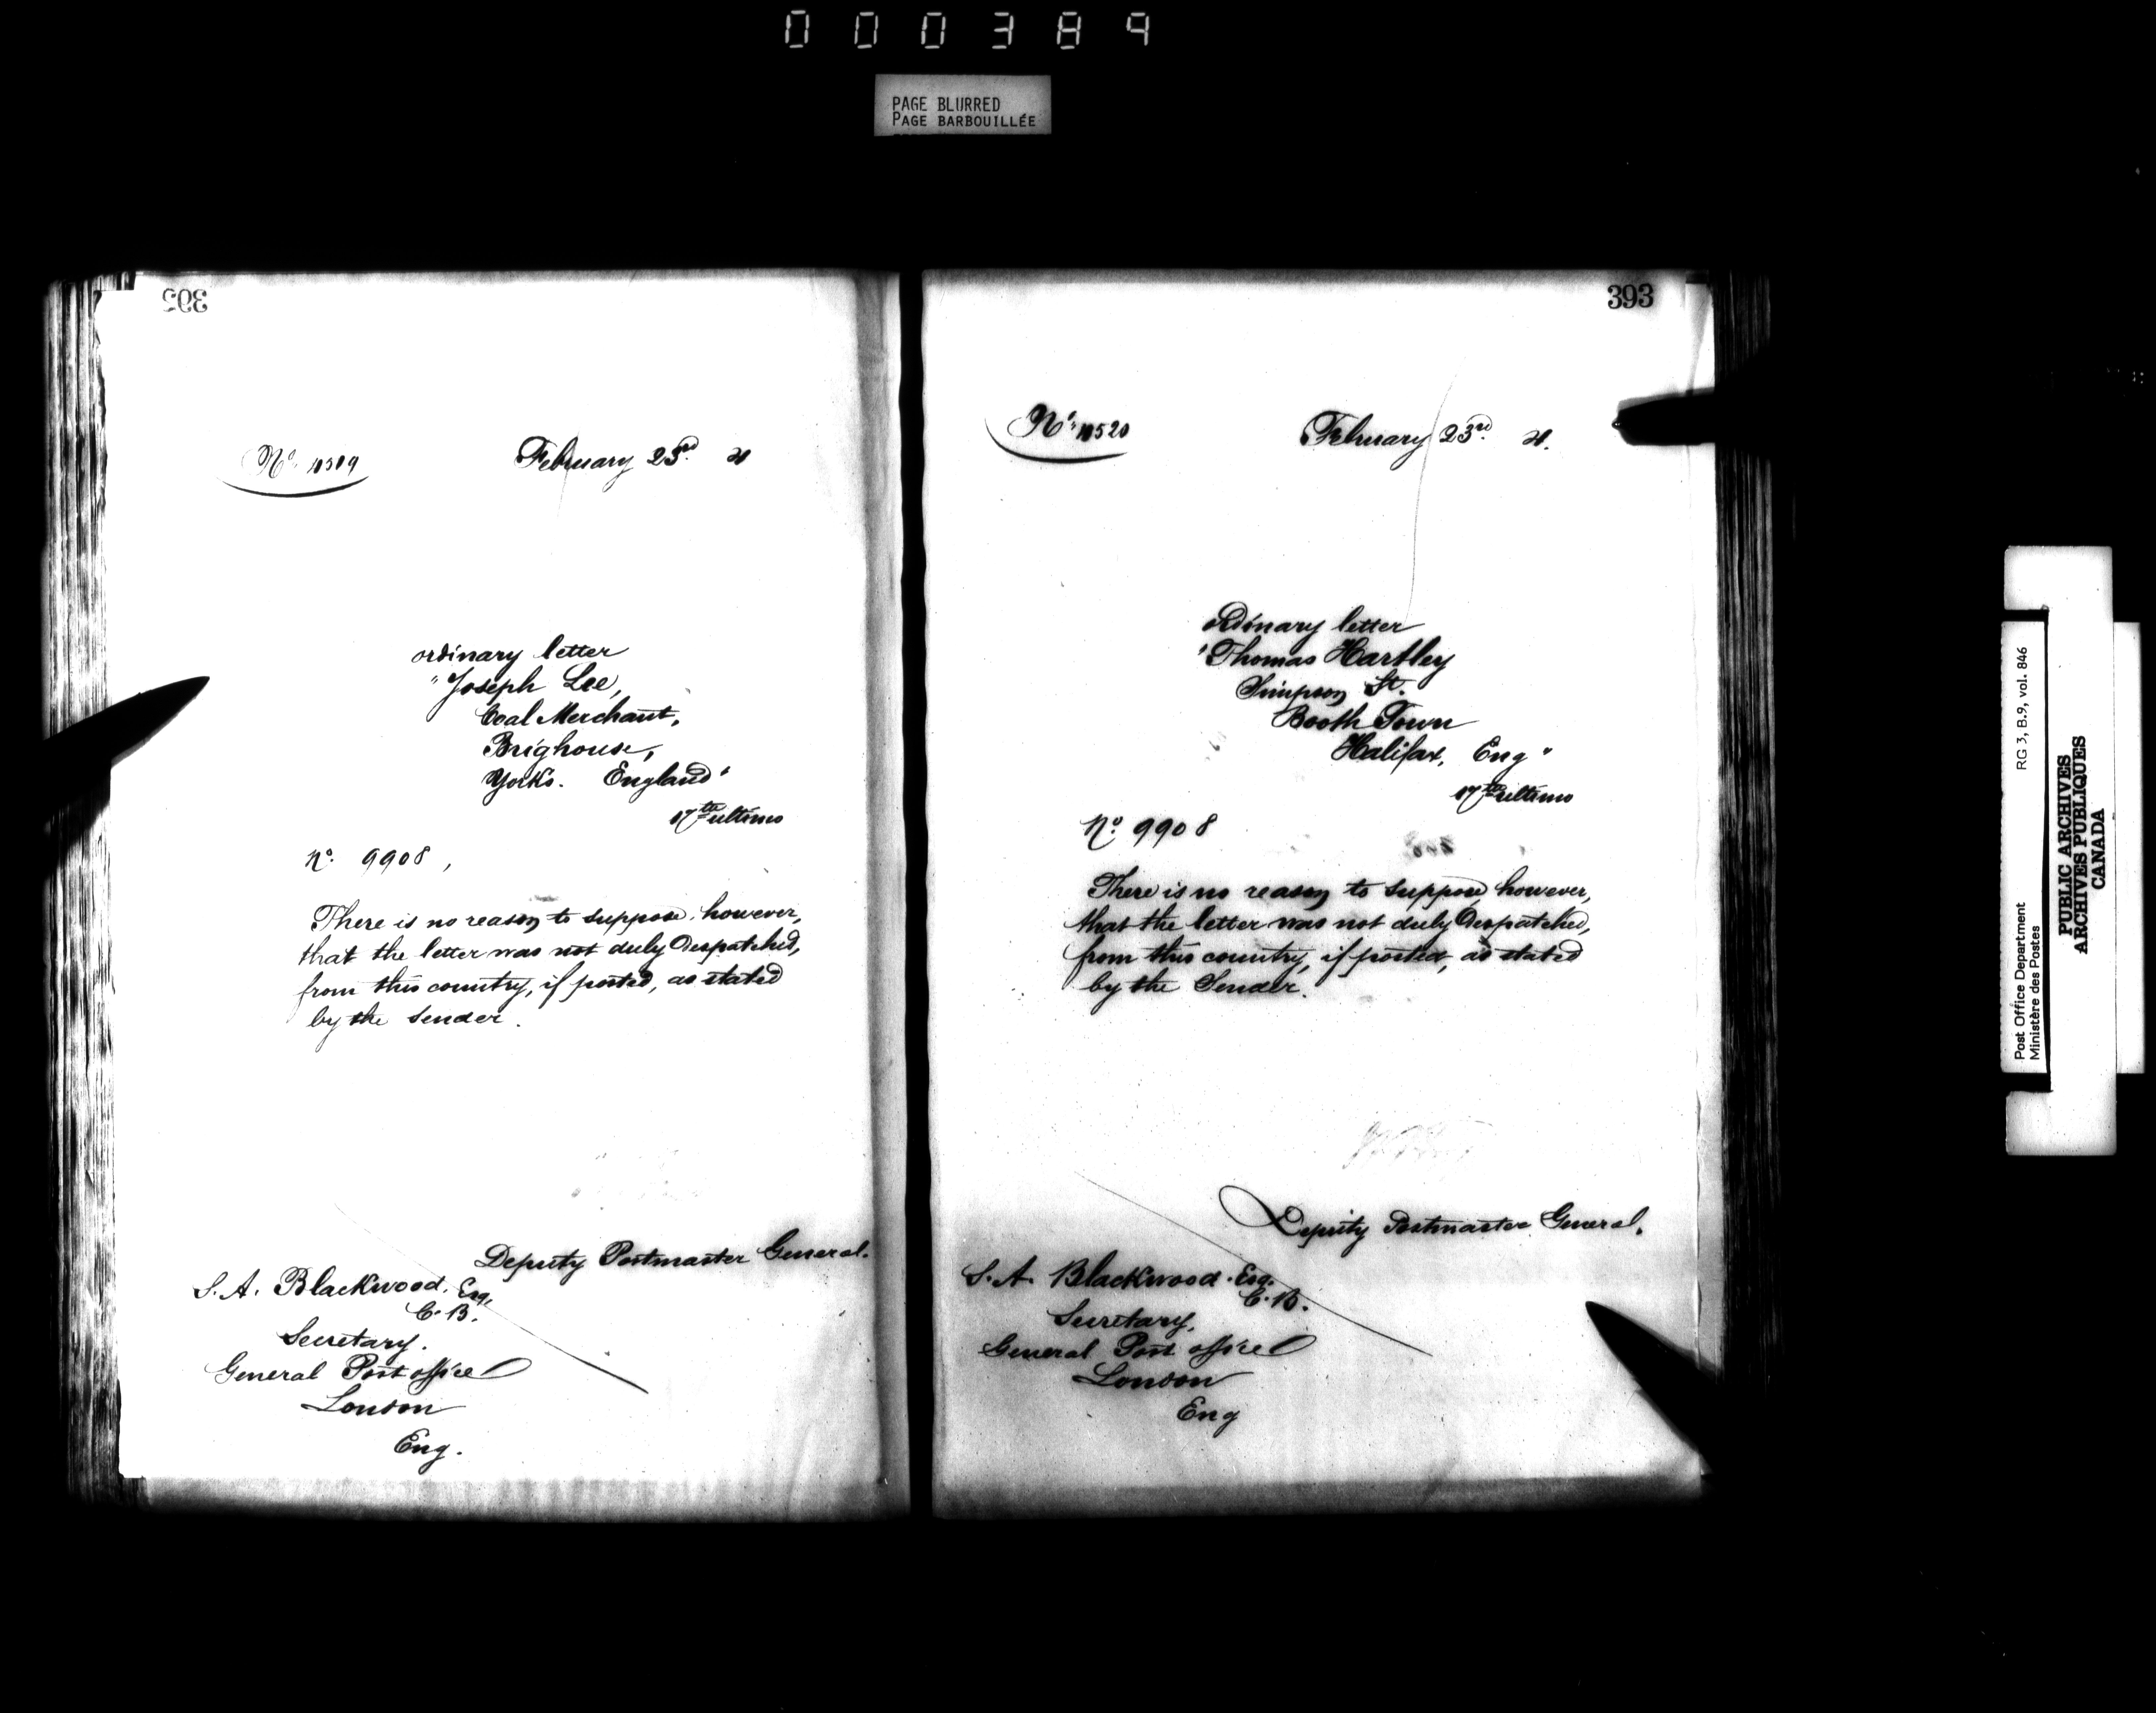 000389
PAGE BLURRED
PAGE BARBOUILLÉE
395
No. 10519
February 23rd
ordinary letter
"Joseph Lee,
Coal Merchant,
Brighouse,
Yorks. England"
17th ultimo
No. 9908,
There is no reason to suppose, however,
that the letter was not duly Despatched,
from this country, if posted, as stated
by the Sender.
Deputy Postmaster General.
S. A. Blackwood, Esq,
C. B.
Secretary.
General Post office
London
Eng.
393
No. 10520
February 23rd
ordinary letter
"Thomas Hartley
Simpson St.
Booth Town
Halifax, Eng"
17th ultimo
No. 9908
There is no reason to suppose, however,
that the letter was not duly Despatched,
from this country, if posted, as stated
by the Sender.
Deputy Postmaster General.
S. A. Blackwood. Esq.
C. B.
Secretary,
General Post office
London
Eng
Post Office Department
Ministère des Postes
RG 3, B.9, vol. 846
PUBLIC ARCHIVES
ARCHIVES PUBLIQUES
CANADA